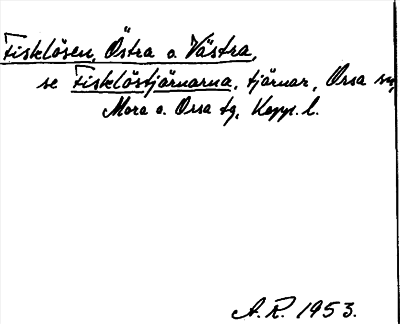 Fisklösen, Östra o. Västra,
se Fisklöstjärnarna, tjärnar, Orsa sn,
Mora o. Orsa tg, Kopp. l.
A.R. 1953.